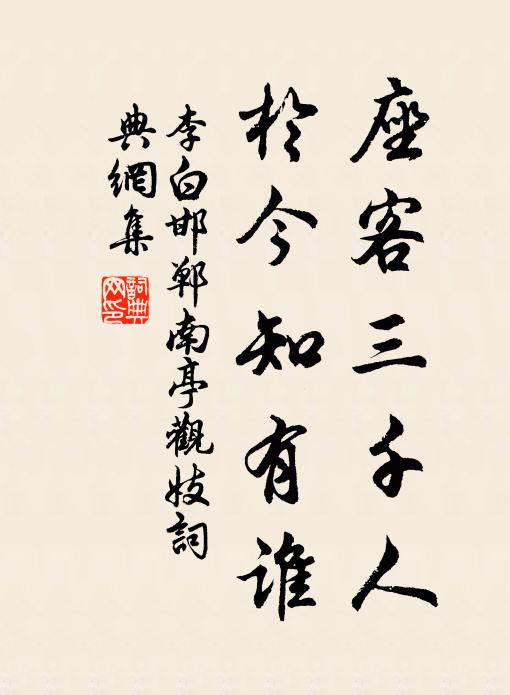 座客三千人
於今知有誰
李白邯鄲南亭觀妓詞
典網集
詞典
网印